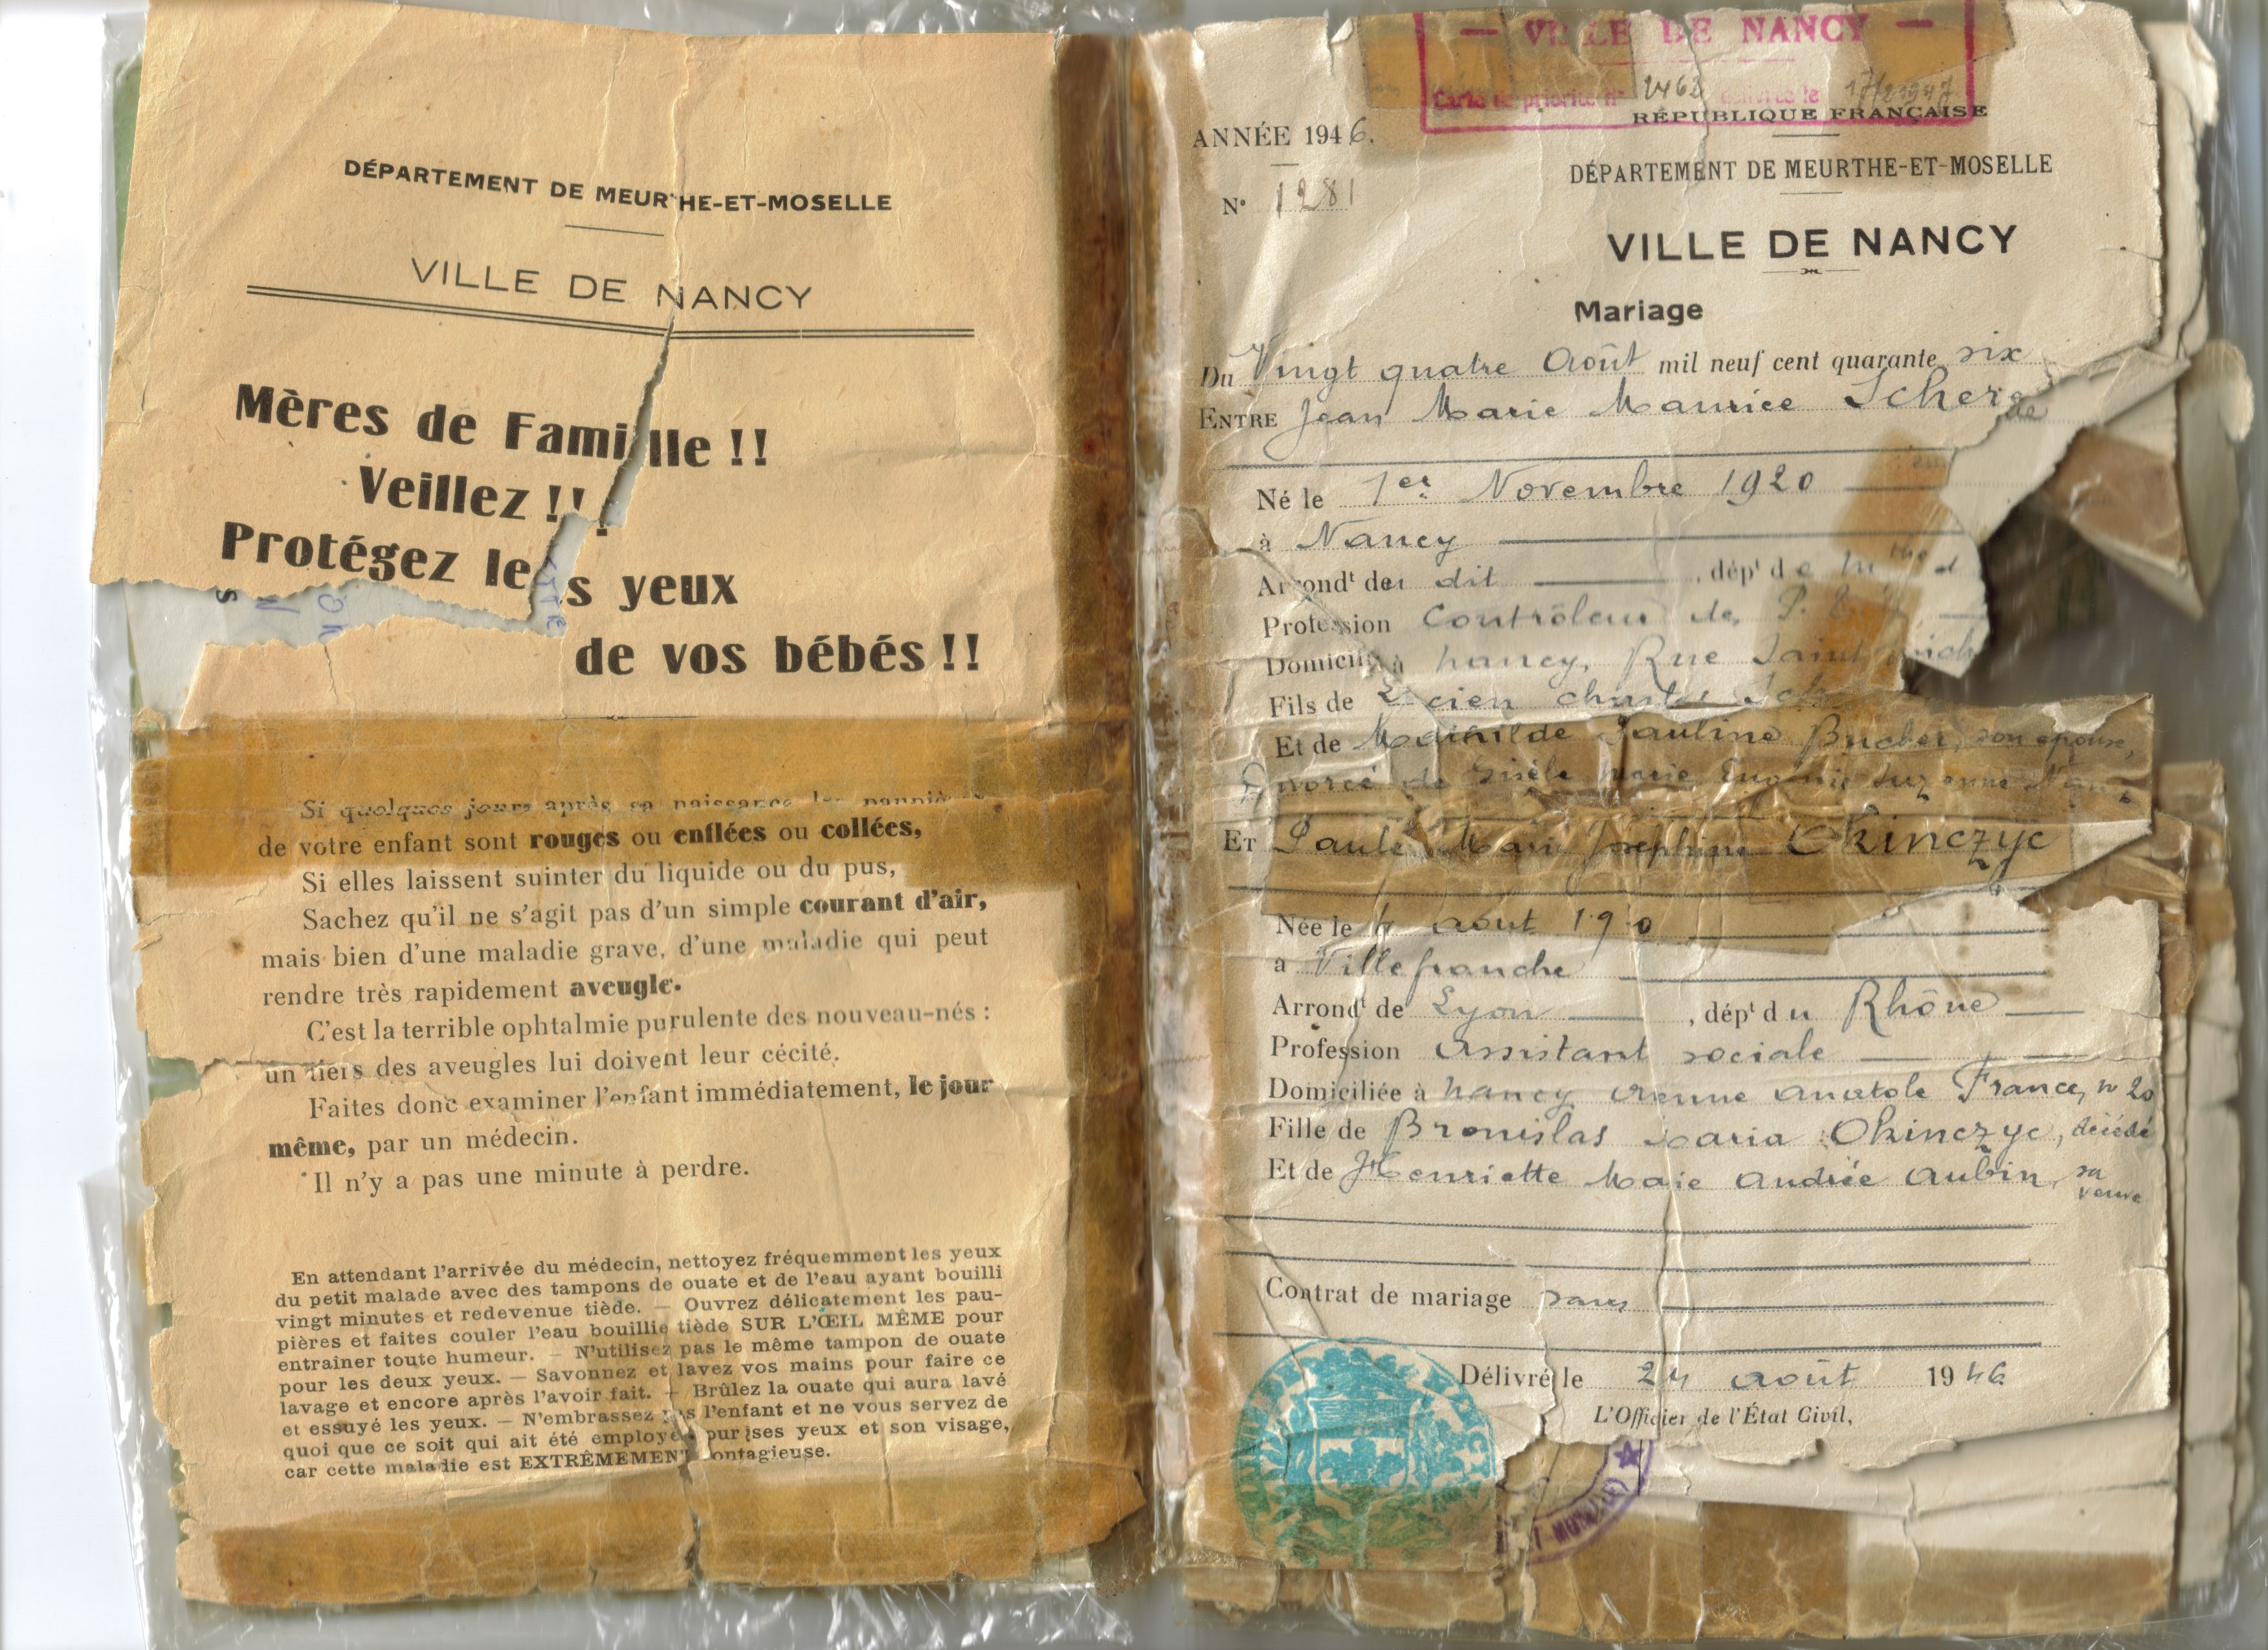 DÉPARTEMENT DE MEURTHE-ET-MOSELLE
VILLE DE NANCY
Mères de Famille !!
Veillez !!
Protégez les yeux
de vos bébés !!
Si quelques jours après sa naissance les paupières
de votre enfant sont rouges ou enflées ou collées,
Si elles laissent suinter du liquide ou du pus,
Sachez qu'il ne s'agit pas d'un simple courant d'air,
mais bien d'une maladie grave, d'une maladie qui peut
rendre très rapidement aveugle.
C'est la terrible ophtalmie purulente des nouveau-nés :
un tiers des aveugles lui doivent leur cécité.
Faites donc examiner l'enfant immédiatement, le jour
même, par un médecin.
Il n'y a pas une minute à perdre.
En attendant l'arrivée du médecin, nettoyez fréquemment les yeux
du petit malade avec des tampons de ouate et de l'eau ayant bouilli
vingt minutes et redevenue tiède. — Ouvrez délicatement les pau-
pières et faites couler l'eau bouillie tiède SUR L'ŒIL MÊME pour
entraîner toute humeur. — N'utilisez pas le même tampon de ouate
pour les deux yeux. — Savonnez et lavez vos mains pour faire ce
lavage et encore après l'avoir fait. — Brûlez la ouate qui aura lavé
et essuyé les yeux. — N'embrassez pas l'enfant et ne vous servez de
quoi que ce soit qui ait été employé pour ses yeux et son visage,
car cette maladie est EXTRÊMEMENT contagieuse.
— VILLE DE NANCY —
Carte de priorité n° 2462 délivrée le
RÉPUBLIQUE FRANÇAISE
ANNÉE 1946.
DÉPARTEMENT DE MEURTHE-ET-MOSELLE
N° 1281
VILLE DE NANCY
Mariage
Du Vingt quatre Août mil neuf cent quarante six
ENTRE Jean Marie Maurice
Né le 1er Novembre 1920
à Nancy
Arrondt du dit , dépt de
Profession Contrôleur des P.
Domicilié à nancy, Rue Saint
Fils de Lucien charles
Et de Mathilde Pauline Bucher, son épouse,
Divorcé de Gisèle marie Eugénie Suzanne
ET Paule Marie Josephine Okinczyc
Née le 4 août
à Villefranche
Arrondt de Lyon , dépt du Rhône
Profession assistant sociale
Domiciliée à nancy avenue anatole France, n 20
Fille de Bronislas Okinczyc, décédé
Et de Henriette Maie andrée aubin, sa
veuve
Contrat de mariage sans
Délivré le 24 août 1946
L'Officier de l'État Civil,